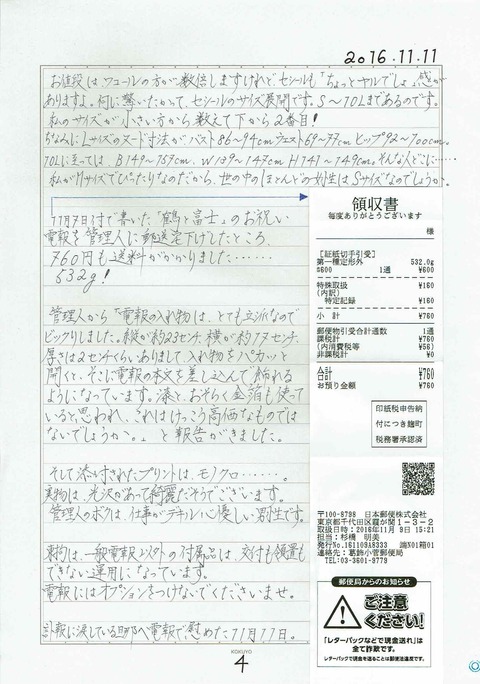 2016.11.11
お値段は、ワコールの方が数倍しますけれどセシールも「ちょっとヤルでしょ」感が
ありますよ。何に驚いたかって、セシールのサイズ展開です。S〜10Lまであるのです。
私のサイズが小さい方から数えて下から2番目!
ちなみにLサイズのヌード寸法が バスト86〜94cm ウエスト69〜77cm ヒップ92〜100cm。
10Lに至っては B149〜157cm、W139〜147cm H141〜149cm。そんな人どこに……
私がMサイズでぴったりなのだから、世の中のほとんどの女性はSサイズなのでしょうか。
11月7日付で書いた「鶴と富士」のお祝い
電報を管理人に郵送宅下げしたところ、
760円も送料がかかりました……
532g!
管理人から「電報の入れ物は、とても立派なので
ビックリしました。縦が約23センチ、横が約17センチ、
厚さは2センチくらいありまして、入れ物をパカッと
開くと、そこに電報の本文を差し込んで飾れる
ようになっています。漆と、おそらく金箔も使って
いると思われ、これはけっこう高価なものでは
ないでしょうか。」と報告がきました。
そして添付されたプリントは、モノクロ……。
実物は、光沢があって綺麗だそうでございます。
管理人のボクは、仕事がデキル心優しい男性です。
東拘は、一般電報以外の付属品は、交付も領置も
できない運用になっています。
電報にはオプションをつけないでくださいませ。
訃報に涙している
電報で慰めた11月11日。
KOKUYO
4
領収書
毎度ありがとうございます
様
[証紙切手引受]
第一種定形外 532.0g
@600 1通 ¥600
特殊取扱 ¥160
(内訳)
特定記録 ¥160
小 計 ¥760
郵便物引受合計通数 1通
課税計 ¥760
(内消費税等 ¥56)
非課税計 ¥0
合計 ¥760
お預り金額 ¥760
印紙税申告納
付につき麹町
税務署承認済
〒100-8798 日本郵便株式会社
東京都千代田区霞が関1-3-2
取扱日時:2016年11月 9日 15:21
担当:杉橋 明美
発行No.161109A8333 端N01箱01
連絡先:葛飾小菅郵便局
TEL:03-3601-9779
郵便局からのお知らせ
ご注意
ください!
「レターパックなどで現金送れ」は
全て詐欺です。
レターパックで現金を送ることは郵便法違反です。